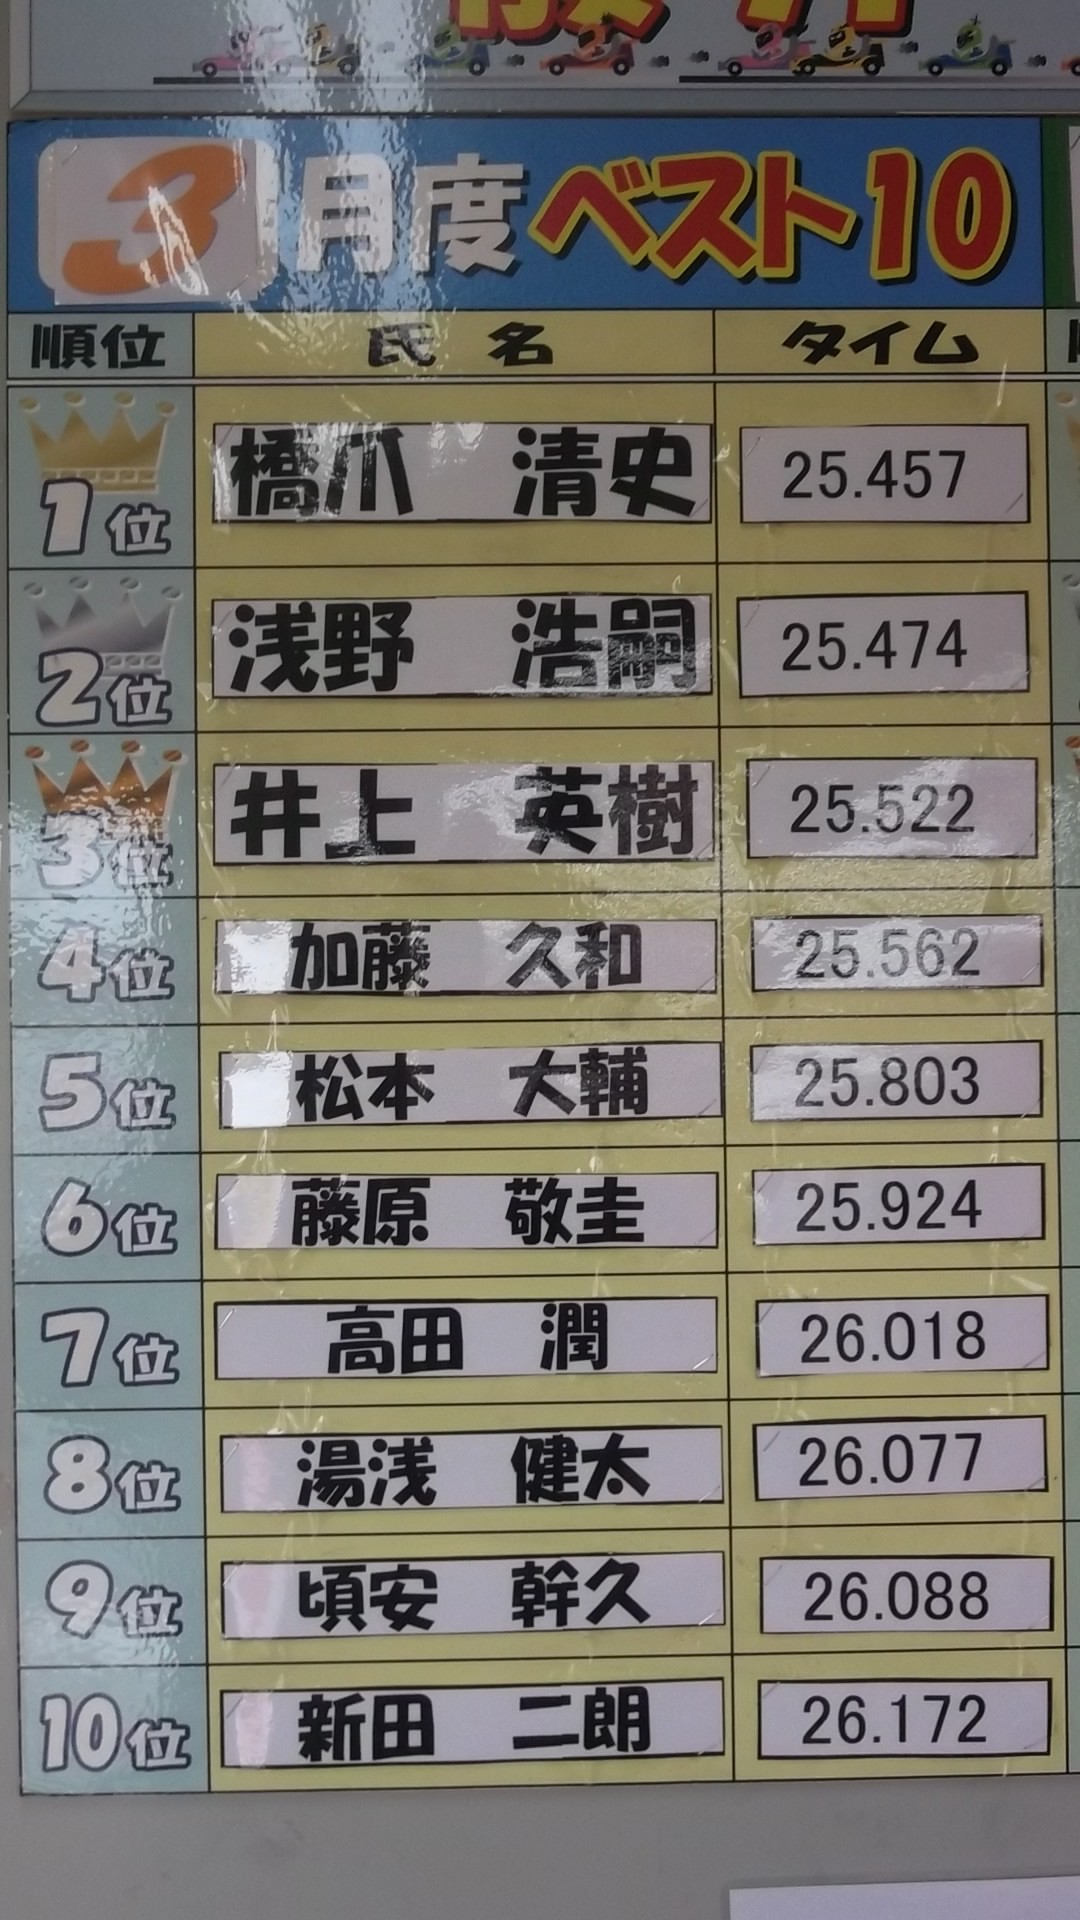 3月度ベスト10
順位 氏名 タイム
1位 橋爪 清史 25.457
2位 浅野 浩嗣 25.474
3位 井上 英樹 25.522
4位 加藤 久和 25.562
5位 松本 大輔 25.803
6位 藤原 敬圭 25.924
7位 高田 潤 26.018
8位 湯浅 健太 26.077
9位 頃安 幹久 26.088
10位 新田 二朗 26.172